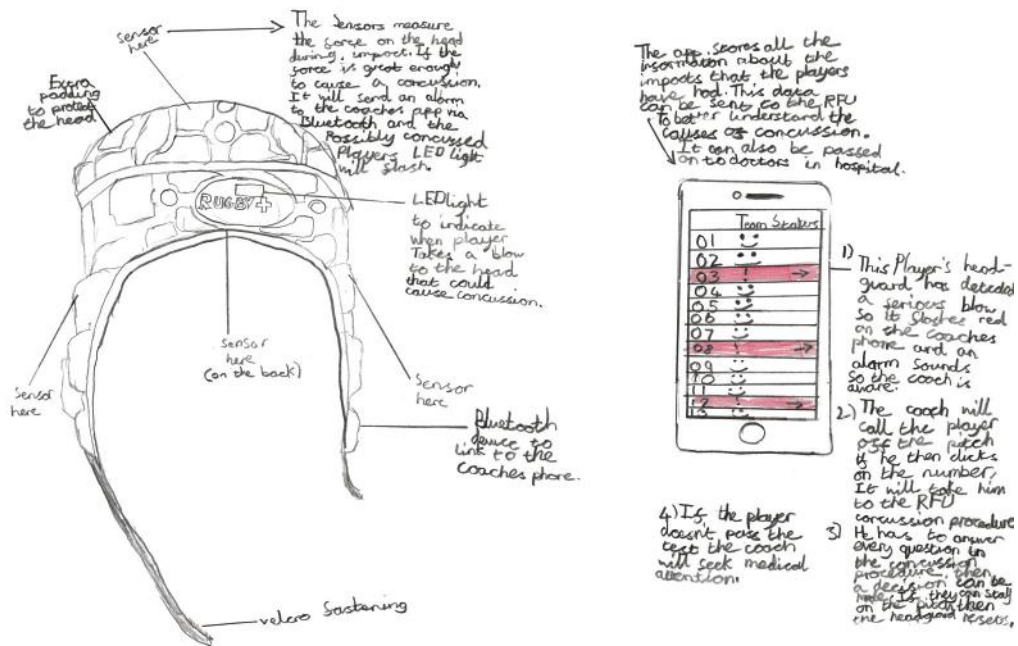 sensor
here
The Sensors measure
the force on the head
during impact. If the
force is great enough
to cause a concussion.
It will send an alarm
to the coaches app via
Bluetooth and the
Possibly concussed
Players LED light
will flash.
Extra
padding
to protect
the head
RUGBY+
LED light
to indicate
when player
Takes a blow
to the head
that could
cause concussion.
sensor
here
sensor
here
(on the back)
sensor
here
Bluetooth
device to
link to the
coaches phone.
velcro fastening
The app stores all the
information about the
impacts that the players
have had. This data
can be sent to the RFU
To better understand the
causes of concussion.
It can also be passed
on to doctors in hospital.
Team Status
01
02
03 ! →
04
05
06
07
08 ! →
09
10
11
12 ! →
13
1) This Player's head-
guard has detected
a serious blow
so it flashes red
on the coaches
phone and an
alarm sounds
so the coach is
aware.
2) The coach will
call the player
off the pitch
if he then clicks
on the number,
It will take him
to the RFU
concussion procedure
3) He has to answer
every question in
the concussion
procedure, then
a decision can be
made. If they can stay
on the pitch then
the headguard resets.
4) If the player
doesn't pass the
test the coach
will seek medical
attention.